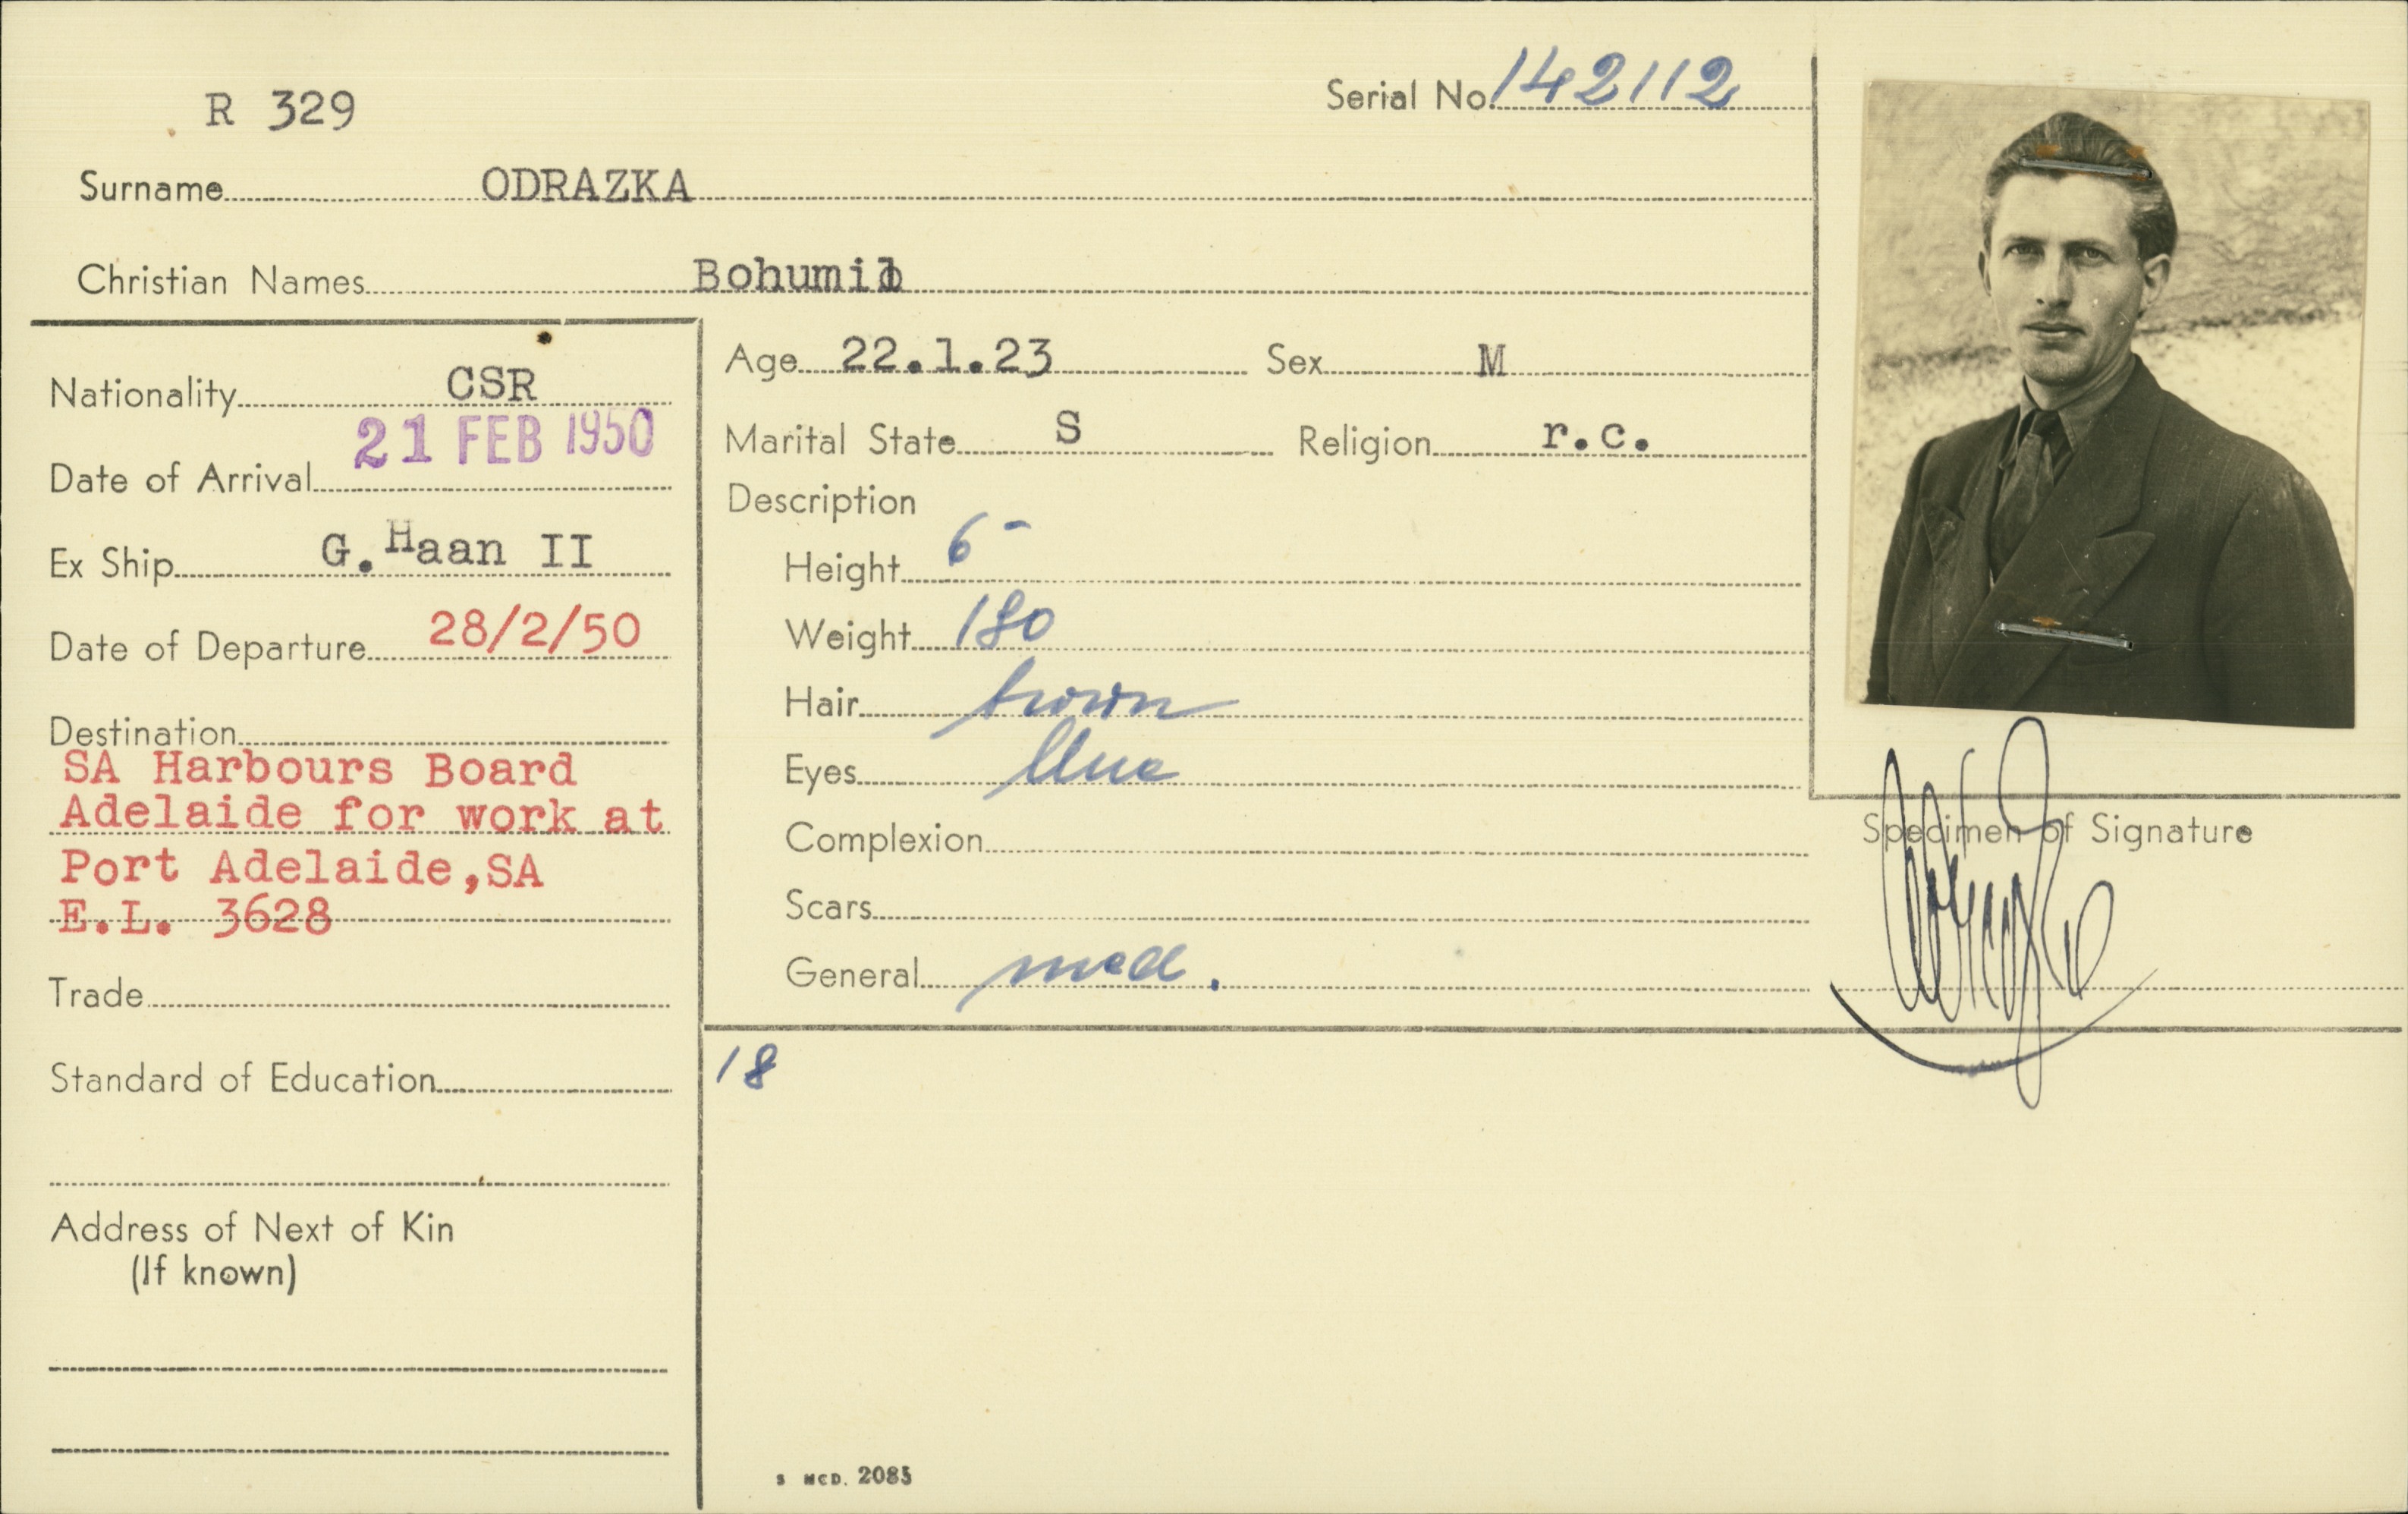 R 329
Serial No. 142112
Surname ODRAZKA
Christian Names Bohumil
Nationality CSR
Date of Arrival 21 FEB 1950
Ex Ship G. Haan II
Date of Departure 28/2/50
Destination
SA Harbours Board
Adelaide for work at
Port Adelaide,SA
E.L. 3628
Trade
Standard of Education
Address of Next of Kin
(If known)
Age 22.1.23 Sex M
Marital State S Religion r.c.
Description
Height 6 -
Weight 180
Hair brown
Eyes blue
Complexion
Scars
General med.
18
Specimen of Signature
S MCD. 2085